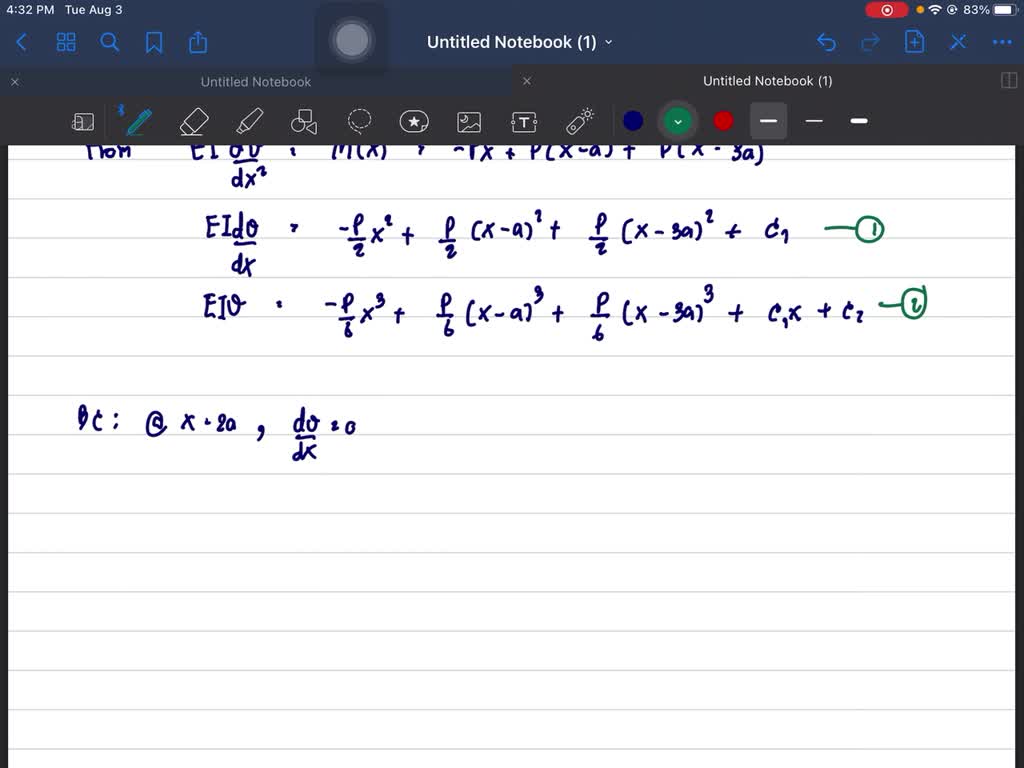 4:32 PM Tue Aug 3
83%
Untitled Notebook (1)
Untitled Notebook
Untitled Notebook (1)
EI d²v/dx² = M(x) = -Px + P(x-a) + P(x-3a)
EI dv/dx = -P/2 x² + P/2 (x-a)² + P/2 (x-3a)² + C₁ — ①
EIv = -P/6 x³ + P/6 (x-a)³ + P/6 (x-3a)³ + C₁x + C₂ — ②
BC: @ x=2a, dv/dx = 0